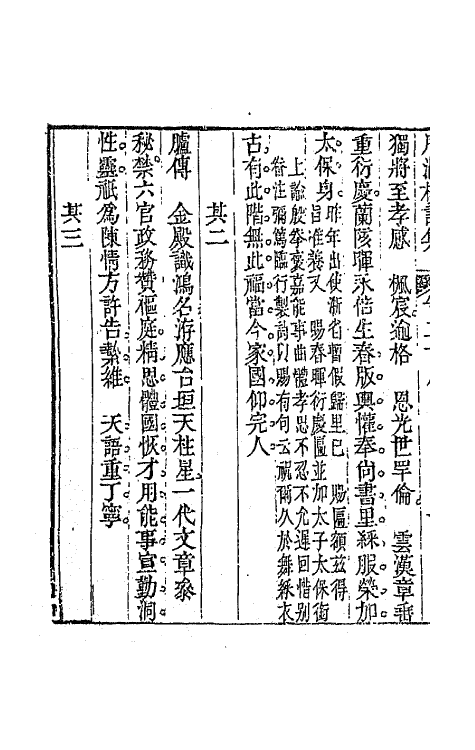 獨將至孝感　楓宸逾格　恩光世罕倫　雲漢章垂
重衍慶蘭陔暉永倍生春版輿懽奉尚書里綵服榮加
太保身昨年出使浙省暫假歸里已　賜匾額茲得
旨准養又　賜春暉衍慶匾並加太子太保銜
上諭殷拳褒嘉能事出體孝思不忍不允遲回惜別
眷注彌篤臨行製詩以賜有句云祇爾久於舞綵衣
古有此階無此福當今家國仰完人
其二
臚傳　金殿識鴻名洊應台垣天柱星一代文章參
秘禁六官政務贊樞庭精思體國恢才用能事宣勤洞
性靈祇為陳情方許告縶維　天語重丁寧
其三